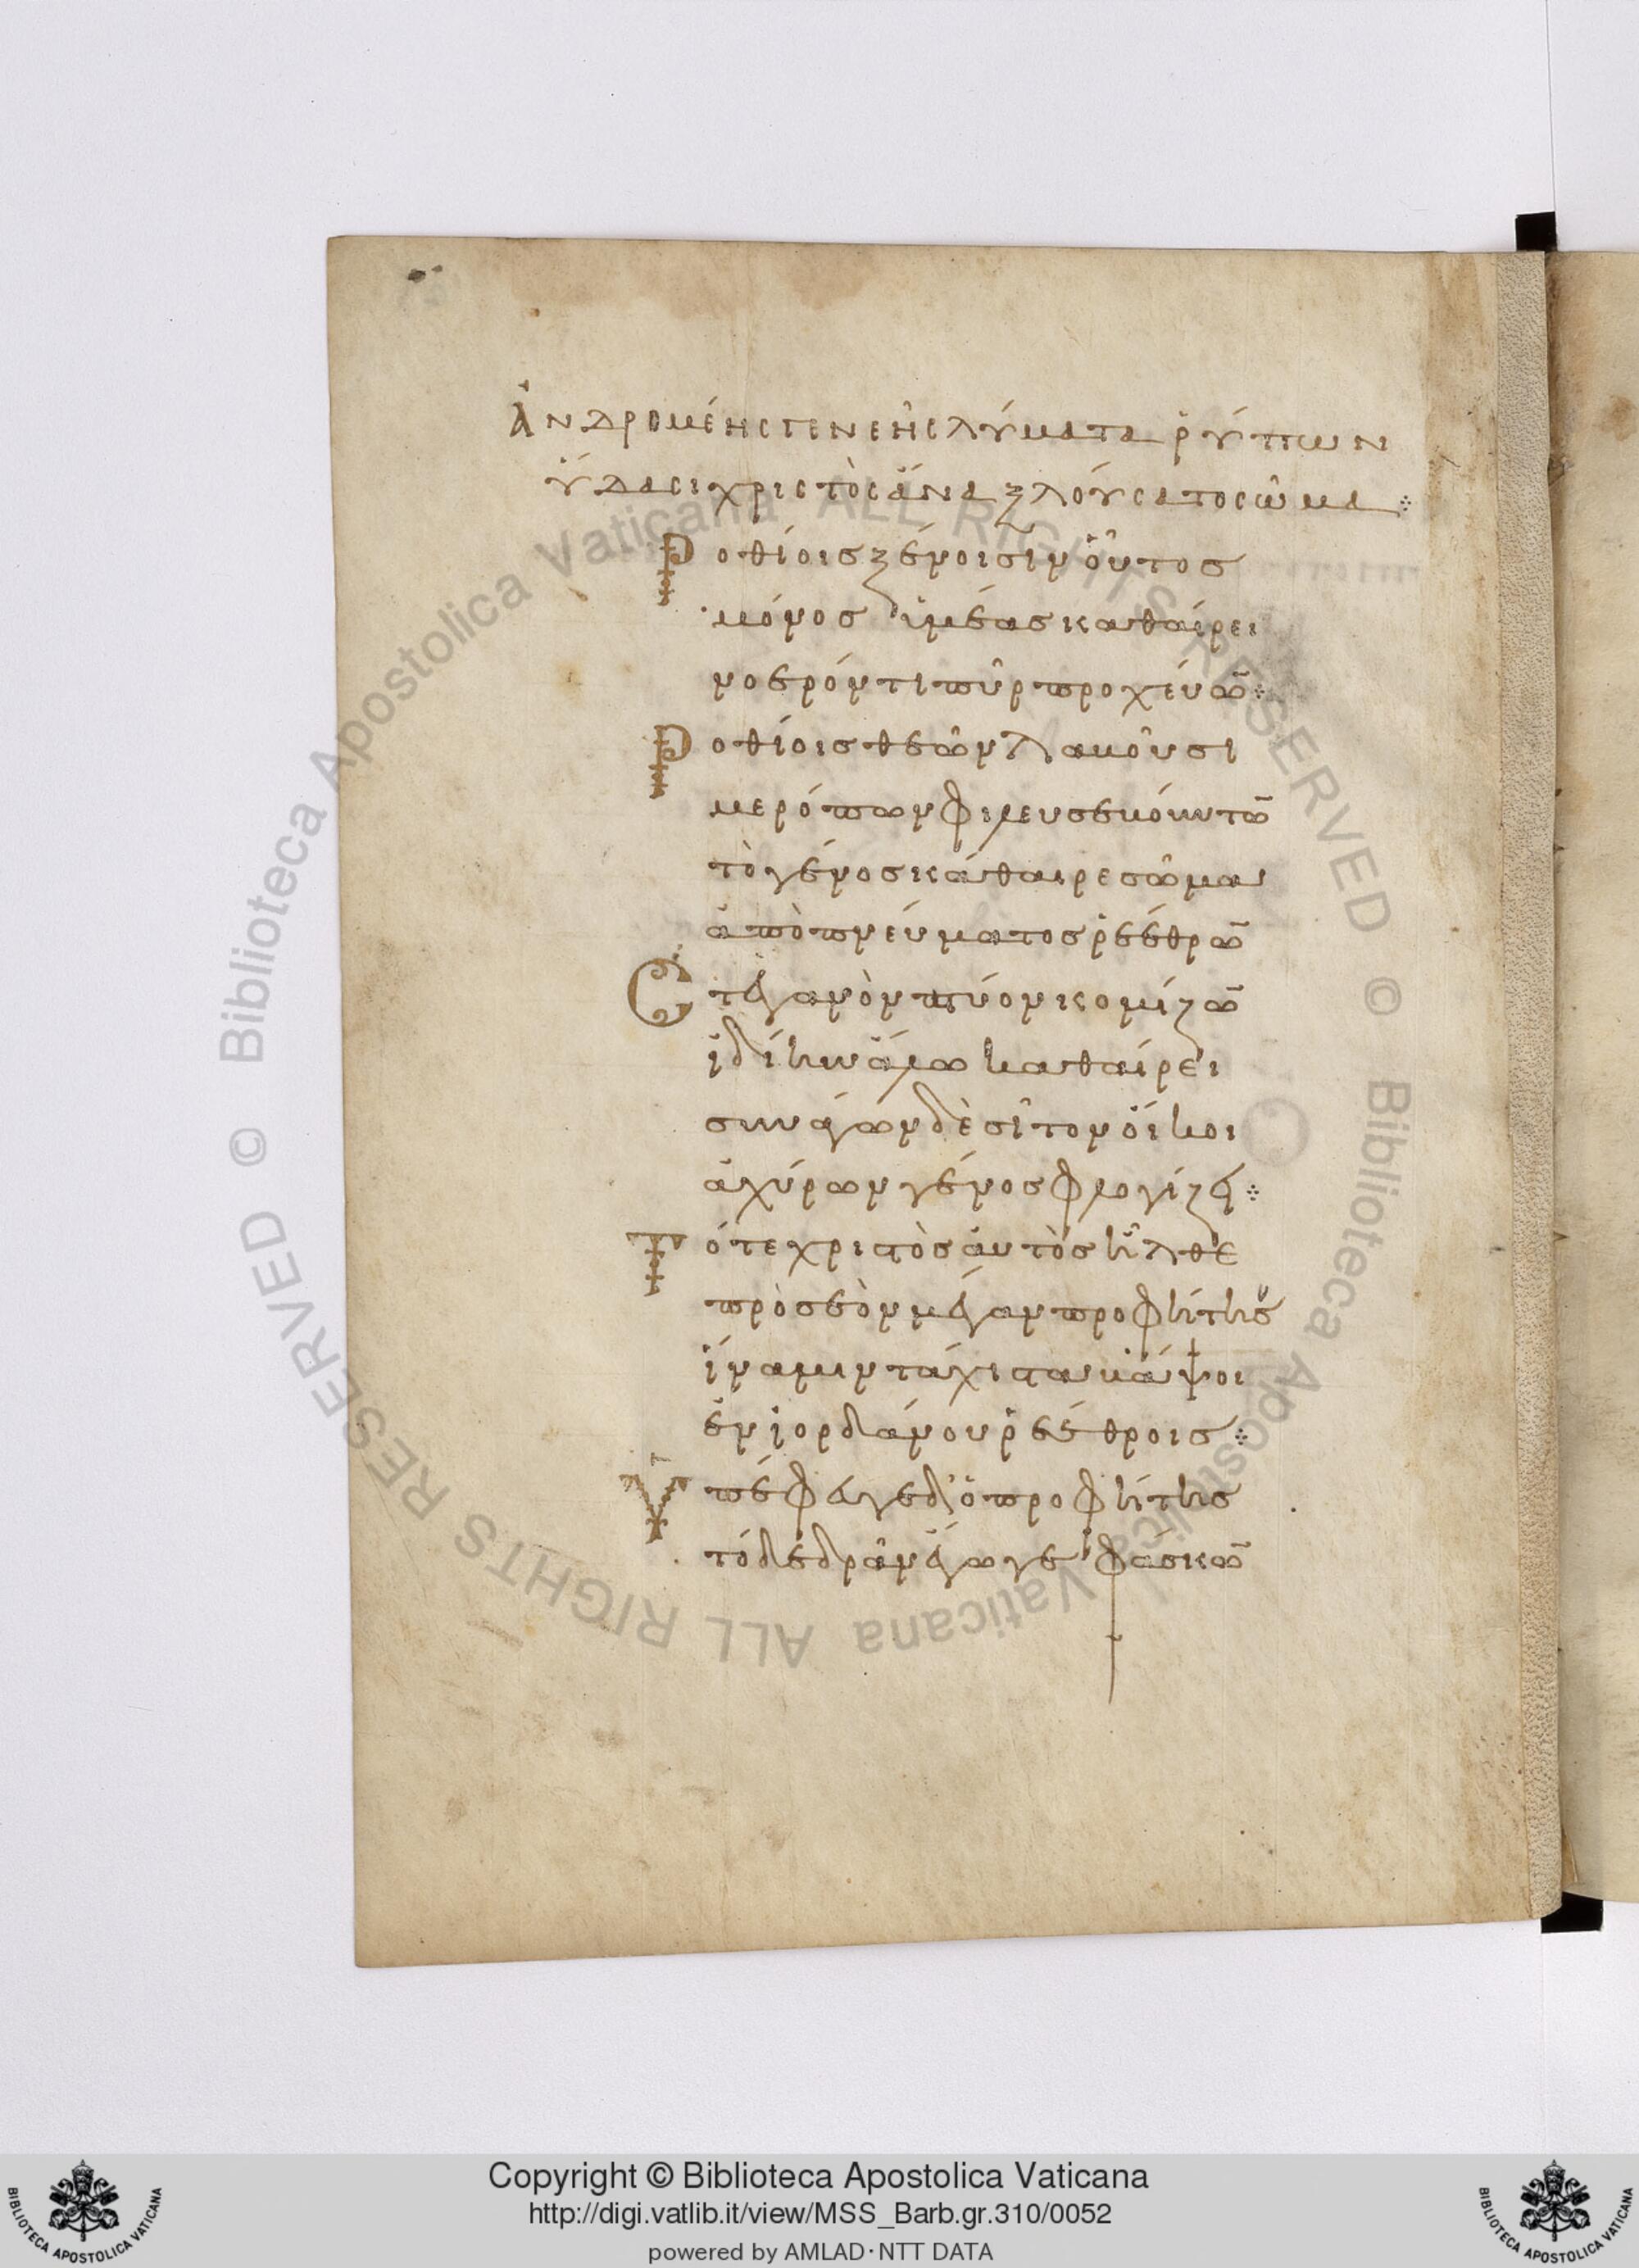 ἀνδρομέης γενεῆς λύματα ῥύπων
ὕδασι χριστὸς ἄναξ λούσατο σῶμα
Ῥοθίοις ξένοισιν οὗτος
μόνος ἐμβὰς καθαίρει
νοερόν τι πῦρ προχεύων
Ῥοθίοις θεῶν λακοῦσι
μερόπων φιλευσεβούντων
τὸ γένος κάθαιρε σῶμα
ἀπὸ πνεύματος ῥεέθρων
Στεγανὸν πτύον κομίζων
ἰδίην ἅλω καθαίρει
συνάγων δὲ σῖτον οἴκοι
ἀχύρων γένος φλογίζει
Τότε χριστὸς αὐτὸς ἦλθε
πρὸς ἐὸν μέγαν προφήτην
ἵνα μιν τάχιστα βάψοι
ἐν ἰορδάνου ῥεέθροις
Ὑπέφευγε δ' ὁ προφήτης
τόδε δρᾶν ἔγωγε φάσκων
Copyright © Biblioteca Apostolica Vaticana
http://digi.vatlib.it/view/MSS_Barb.gr.310/0052
powered by AMLAD·NTT DATA
BIBLIOTECA APOSTOLICA VATICANA
BIBLIOTECA APOSTOLICA VATICANA
© Biblioteca Apostolica Vaticana ALL RIGHTS RESERVED © Biblioteca Apostolica Vaticana ALL RIGHTS RESERVED